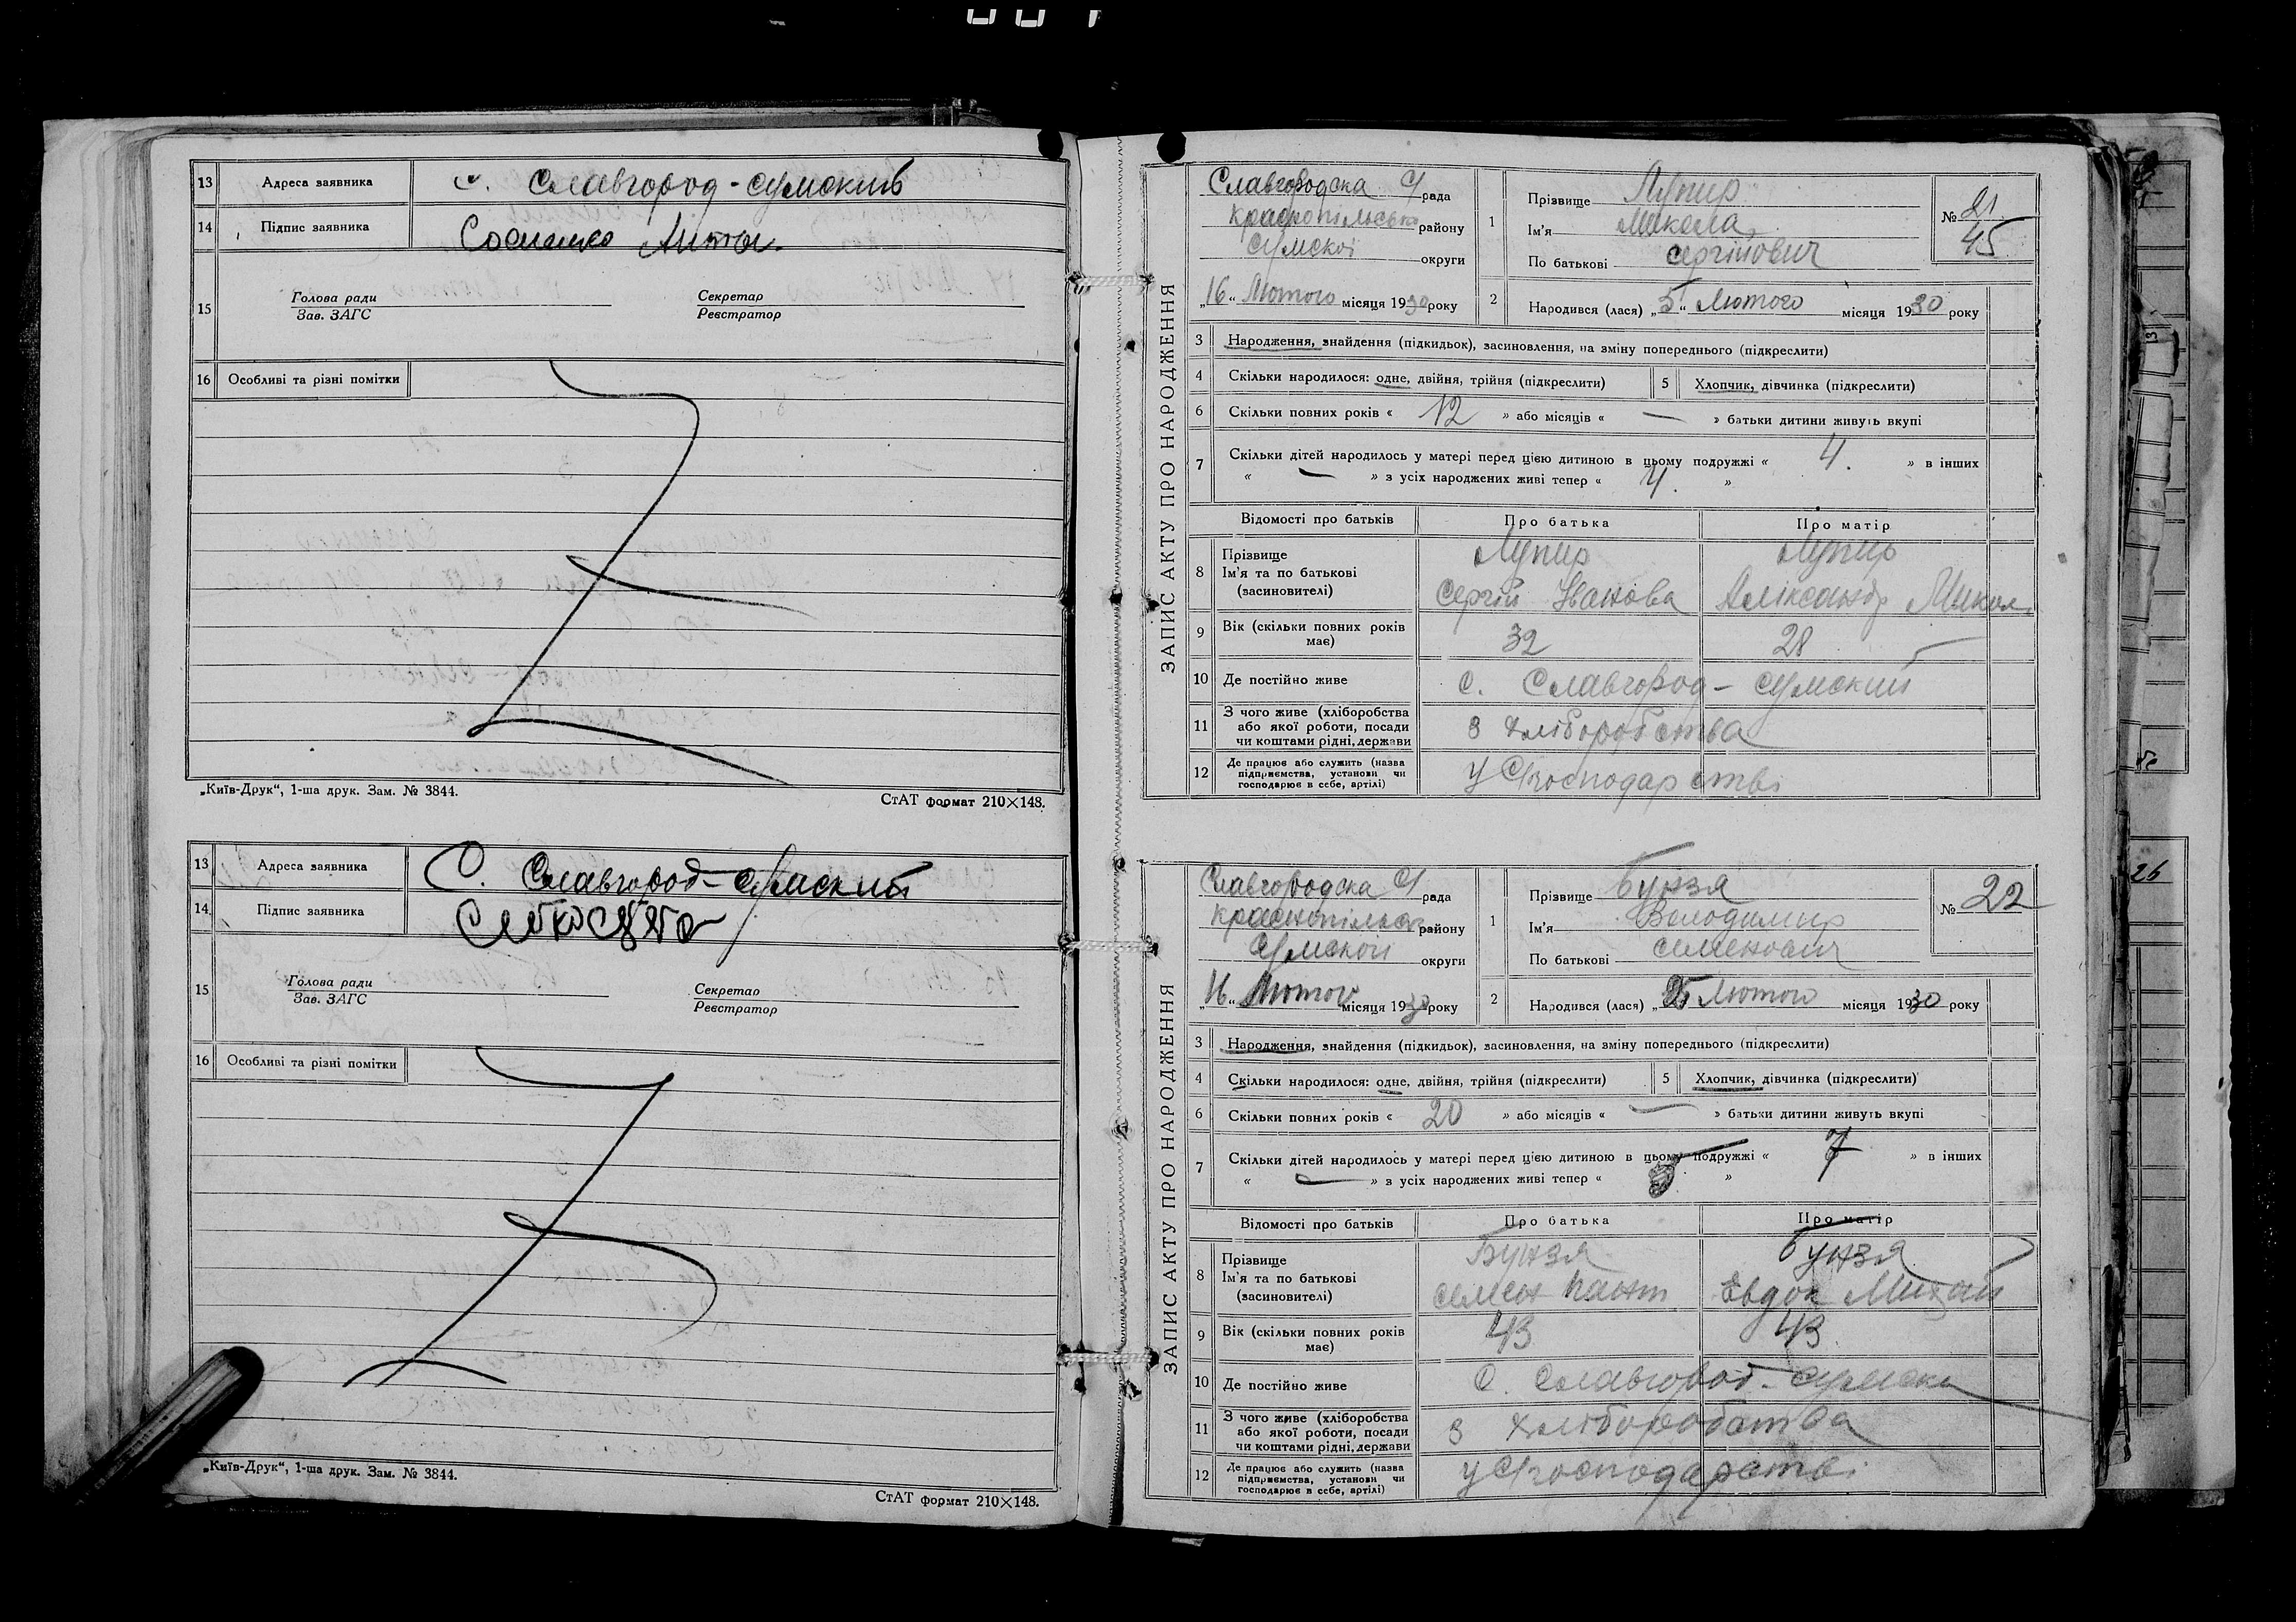 13 Адреса заявника с. Славгород-сумский
14 Підпис заявника
15 Голова ради Секретар
Зав. ЗАГС Реєстратор
16 Особливі та різні помітки
„Київ-Друк“, 1-ша друк. Зам. № 3844.
СтАТ формат 210×148.
13 Адреса заявника С. Славгород-сумский
14 Підпис заявника
15 Голова ради Секретар
Зав. ЗАГС Реєстратор
16 Особливі та різні помітки
„Київ-Друк“, 1-ша друк. Зам. № 3844.
СтАТ формат 210×148.
ЗАПИС АКТУ ПРО НАРОДЖЕННЯ
Славгородска С/рада
Краснопільська району
Сумскоі округи
„16“ Лютого місяця 1930 року
1 Прізвище Лупир
Ім'я Микола
По батькові сергійович
№ 21
45
2 Народився (лася) „5“ Лютого місяця 1930 року
3 Народження, знайдення (підкидьок), засиновлення, на зміну попереднього (підкреслити)
4 Скільки народилося: одне, двійня, трійня (підкреслити) 5 Хлопчик, дівчинка (підкреслити)
6 Скільки повних років « 12 » або місяців « — » батьки дитини живуть вкупі
7 Скільки дітей народилось у матері перед цією дитиною в цьому подружжі « 4. » в інших
« — » з усіх народжених живі тепер « 4. »
Відомості про батьків Про батька Про матір
8 Прізвище Лупир Лупир
Ім'я та по батькові Сергій Іванова Аліксандр Микол
(засиновителі)
9 Вік (скільки повних років має) 32 28
10 Де постійно живе с. Славгород-сумский
11 З чого живе (хліборобства
або якої роботи, посади з хліборобства
чи коштами рідні, держави
12 Де працює або служить (назва
підприємства, установи чи у С/господарстві
господарює в себе, артілі)
ЗАПИС АКТУ ПРО НАРОДЖЕННЯ
Славгородска С/рада
Краснопільск району
Сумскои округи
„16“ Лютого місяця 1930 року
1 Прізвище Бунзя
Ім'я Володимир
По батькові семенович
№ 22
2 Народився (лася) Лютого місяця 1930 року
3 Народження, знайдення (підкидьок), засиновлення, на зміну попереднього (підкреслити)
4 Скільки народилося: одне, двійня, трійня (підкреслити) 5 Хлопчик, дівчинка (підкреслити)
6 Скільки повних років « 20 » або місяців « — » батьки дитини живуть вкупі
7 Скільки дітей народилось у матері перед цією дитиною в цьому подружжі « 7 » в інших
« — » з усіх народжених живі тепер « »
Відомості про батьків Про батька Про матір
8 Прізвище Бунзя Бунзя
Ім'я та по батькові семен Пант Евдок Михай
(засиновителі)
9 Вік (скільки повних років має) 43 43
10 Де постійно живе С. Славгород-сумска
11 З чого живе (хліборобства
або якої роботи, посади з хліборобства
чи коштами рідні, держави
12 Де працює або служить (назва
підприємства, установи чи у С/господарстві
господарює в себе, артілі)
26